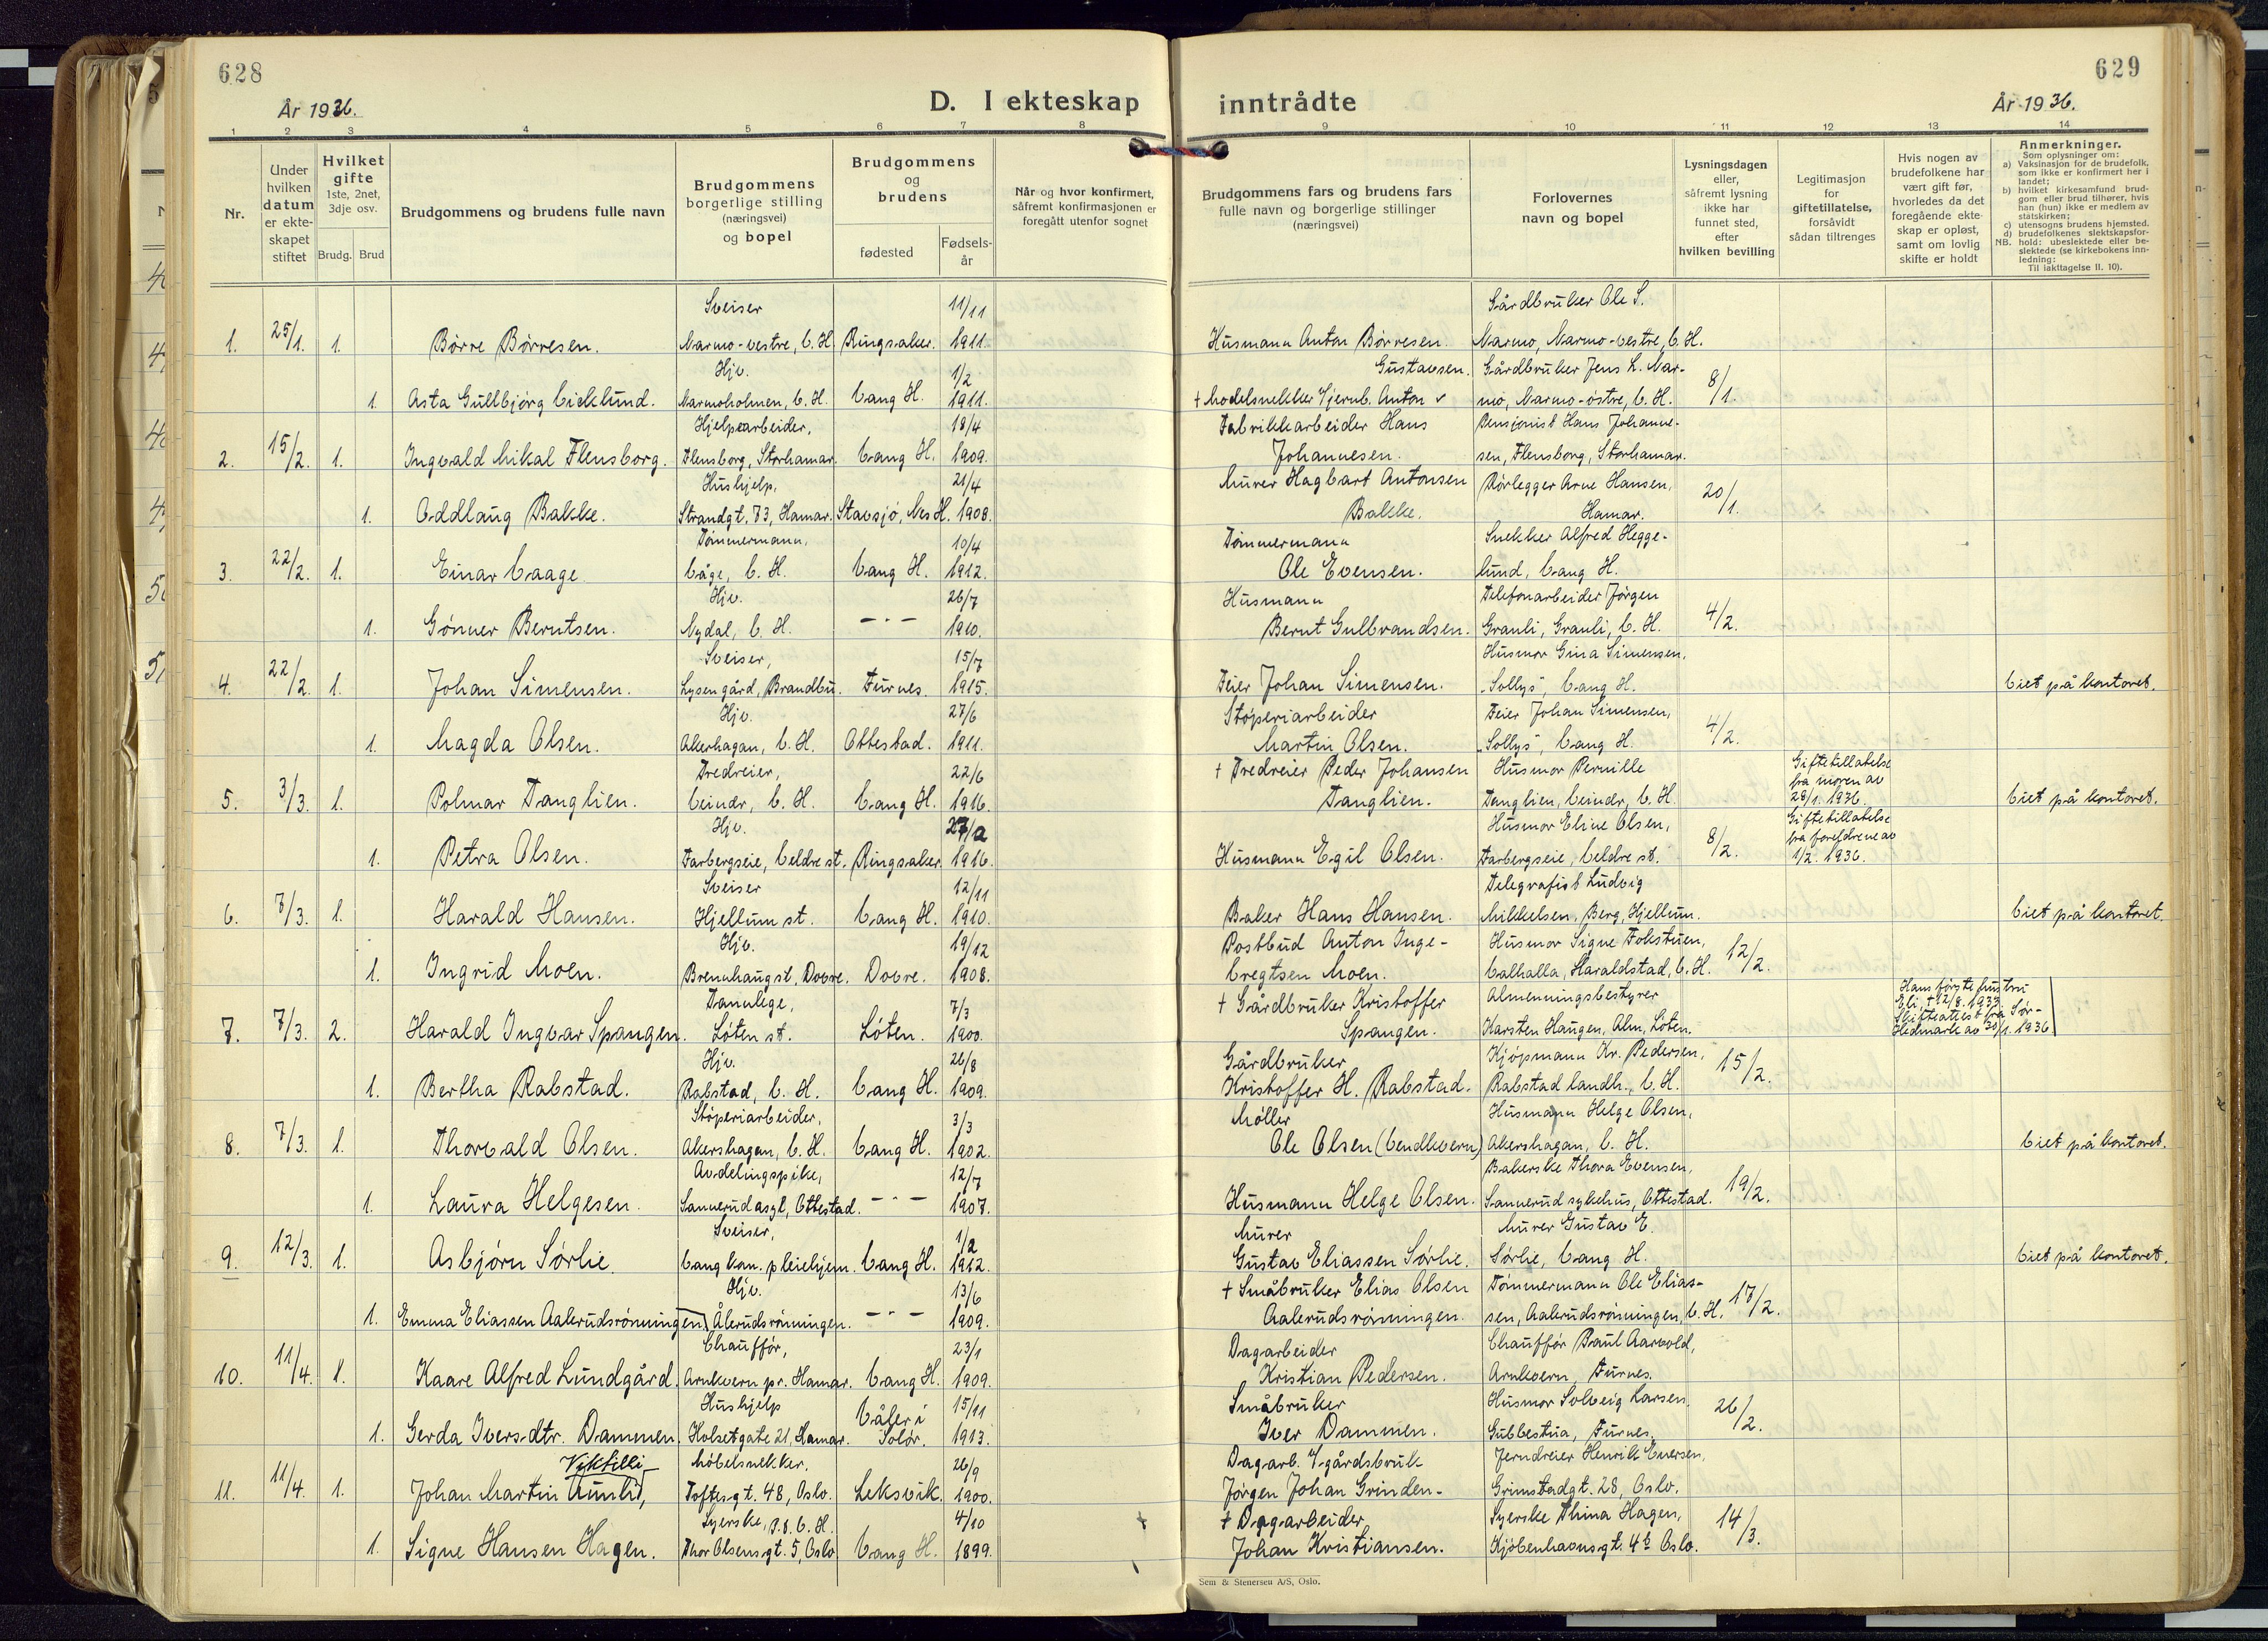 628
År 1936.
D. I ekteskap
1 2 3 4 5 6 7 8
Nr.
Under hvilken datum er ekteskapet stiftet
Hvilket gifte 1ste, 2net, 3dje osv.
Brudg. Brud
Brudgommens og brudens fulle navn
Brudgommens borgerlige stilling (næringsvei) og bopel
Brudgommens og brudens
fødested
Fødselsår
Når og hvor konfirmert, såfremt konfirmasjonen er foregått utenfor sognet
Sveiser 11/11
1. 25/1. 1. Børre Børresen. Narmo-vestre, V.H. Ringsaker. 1911.
Hjv. 1/2
1. Asta Gullbjørg Vicklund. Narmoholmen, V.H. Vang H. 1911.
Hjelpearbeider, 18/4
2. 15/2. 1. Ingvald Mikal Flensborg. Flensborg, Storhamar. Vang H. 1909.
Hushjelp, 21/4
1. Oddlaug Bakke. Strandgt. 73, Hamar. Stavsjø, Nes H. 1908.
Tømmermann, 10/4
3. 22/2. 1. Einar Vaage. Våge, V.H. Vang H. 1912.
Hjv. 26/7
1. Gønner Berntsen. Nydal, V.H. — " — 1910.
Sveiser, 15/7
4. 22/2. 1. Johan Simensen. Lysen gård, Brandbu. Furnes. 1915.
Hjv. 27/6
1. Magda Olsen. Akerhagan, V.H. Ottestad. 1911.
Tredreier, 22/6
5. 3/3. 1. Polmar Tanglien. Veindr, V.H. Vang H. 1916.
Hjv. 27/2
1. Petra Olsen. Farbergseie, Veldre st. Ringsaker. 1916.
Sveiser 12/11
6. 7/3. 1. Harald Hansen. Hjellum st. Vang H. 1910.
Hjv. 19/12
1. Ingrid Moen. Brennhaug st, Dovre. Dovre. 1908.
Tannlege, 7/3
7. 7/3. 2. Harald Ingvar Spangen. Løten st. Løten. 1900.
Hjv. 26/8
1. Bertha Rabstad. Rabstad, V.H. Vang H. 1909.
Støperiarbeider, 3/3
8. 7/3. 1. Thorvald Olsen. Akershagan, V.H. Vang H. 1902.
Avdelingspike, 12/7
1. Laura Helgesen. Sannerud asyl, Ottestad. — " — 1907.
Sveiser, 1/2
9. 12/3. 1. Asbjørn Sørlie. Vang kom. pleiehjem. Vang H. 1912.
Hjv. 13/6
1. Emma Eliassen Aalerudsrønningen Ålerudsrønningen. — " — 1909.
Chauffør, 23/1
10. 11/4. 1. Kaare Alfred Lundgård. Arnkvern pr. Hamar. Vang H. 1909.
Hushjelp Våler i 15/11
1. Gerda Iversdtr. Dammen. Holsetgate 21, Hamar. Solør. 1913.
Møbelsnekker, 26/9
11. 11/4. 1. Johan Martin Aunlid, Toftesgt. 48, Oslo. Leksvik. 1900.
Syerske, p.t. V.H. 4/10
1. Signe Hansen Hagen. Thor Olsensgt. 5, Oslo. Vang H. 1899.
629
År 1936.
inntrådte
9 10 11 12 13 14
Brudgommens fars og brudens fars fulle navn og borgerlige stillinger (næringsvei)
Forlovernes navn og bopel
Lysningsdagen eller, såfremt lysning ikke har funnet sted, efter hvilken bevilling
Legitimasjon for giftetillatelse, forsåvidt sådan tiltrenges
Hvis nogen av brudefolkene har vært gift før, hvorledes da det foregående ekteskap er opløst, samt om lovlig skifte er holdt
Anmerkninger.
Som oplysninger om:
a) Vaksinasjon for de brudefolk, som ikke er konfirmert her i landet;
b) hvilket kirkesamfund brudgom eller brud tilhører, hvis han (hun) ikke er medlem av statskirken;
c) utensogns brudens hjemsted.
d) brudefolkenes slektskapsforhold: ubeslektede eller beslektede (se kirkebokens innledning:
NB.
Til iakttagelse II. 10).
Gårdbruker Ole S.
Husmann Anton Børresen. Narmo, Narmo-vestre, V.H.
Gustavsen. Gårdbruker Jens L. Nar-
† Modelsnekker v/jernb. Anton v mo, Narmo-østre, V.H. 8/1.
Fabrikkarbeider Hans Pensjonist Hans Johanne-
Johannesen. sen, Flensborg, Storhamar.
Murer Hagbart Antonsen Rørlegger Arne Hansen, 20/1.
Bakke. Hamar.
Tømmermann Snekker Alfred Hegge-
Ole Evensen. lund, Vang H.
Husmann Telefonarbeider Jørgen
Bernt Gulbrandsen. Granli, Granli, V.H. 4/2.
Husmor Gina Simensen,
Feier Johan Simensen. "Sollys", Vang H. Viet på kontoret.
Støperiarbeider Feier Johan Simensen,
Martin Olsen. "Sollys", Vang H. 4/2.
† Tredreier Peder Johansen Husmor Pernille Giftetillatelse fra moren av
Tanglien. Tanglien, Veindr, V.H. 28/1. 1936. Viet på kontoret.
Husmor Eline Olsen, Giftetillatelse fra foreldrene av
Husmann Egil Olsen. Farbergseie, Veldre st. 8/2. 1/2. 1936.
Telegrafist Ludvig
Baker Hans Hansen. Mikkelsen, Berg, Hjellum. Viet på kontoret.
Postbud Anton Inge- Husmor Signe Fokstuen,
bregtsen Moen. Valhalla, Haraldstad, V.H. 12/2.
† Gårdbruker Kristoffer Almenningsbestyrer Hans første hustru Eli, † 12/8. 1933.
Spangen. Karsten Haugen, Alm, Løten. Skifteattest fra Sør-Hedmark av 30/1. 1936
Gårdbruker Kjøpmann Kr. Pedersen,
Kristoffer H. Rabstad. Rabstad landh., V.H. 15/2.
Møller Husmann Helge Olsen,
Ole Olsen (Vendkvern) Akershagan, V.H. Viet på kontoret.
Bakerske Thora Evensen,
Husmann Helge Olsen. Sannerud sykehus, Ottestad. 19/2.
Murer Murer Gustav E.
Gustav Eliassen Sørlie. Sørlie, Vang H. Viet på kontoret.
† Småbruker Elias Olsen Tømmermann Ole Elias-
Aalerudsrønningen. sen, Aalerudsrønningen, V.H. 17/2.
Dagarbeider Chauffør Paul Aarvold,
Kristian Pedersen. Arnkvern, Furnes.
Småbruker Husmor Solveig Larsen,
Iver Dammen. Gubbestua, Furnes. 26/2.
Dagarb. v/gårdsbruk Jerndreier Henrik Evensen,
Jørgen Johan Grinden- Grimstadgt. 28, Oslo.
† Dagarbeider Syerske Thina Hagen,
Johan Kristiansen. Kjøbenhavnsgt. 4b Oslo. 14/3.
Sem & Stenersen A/S, Oslo.